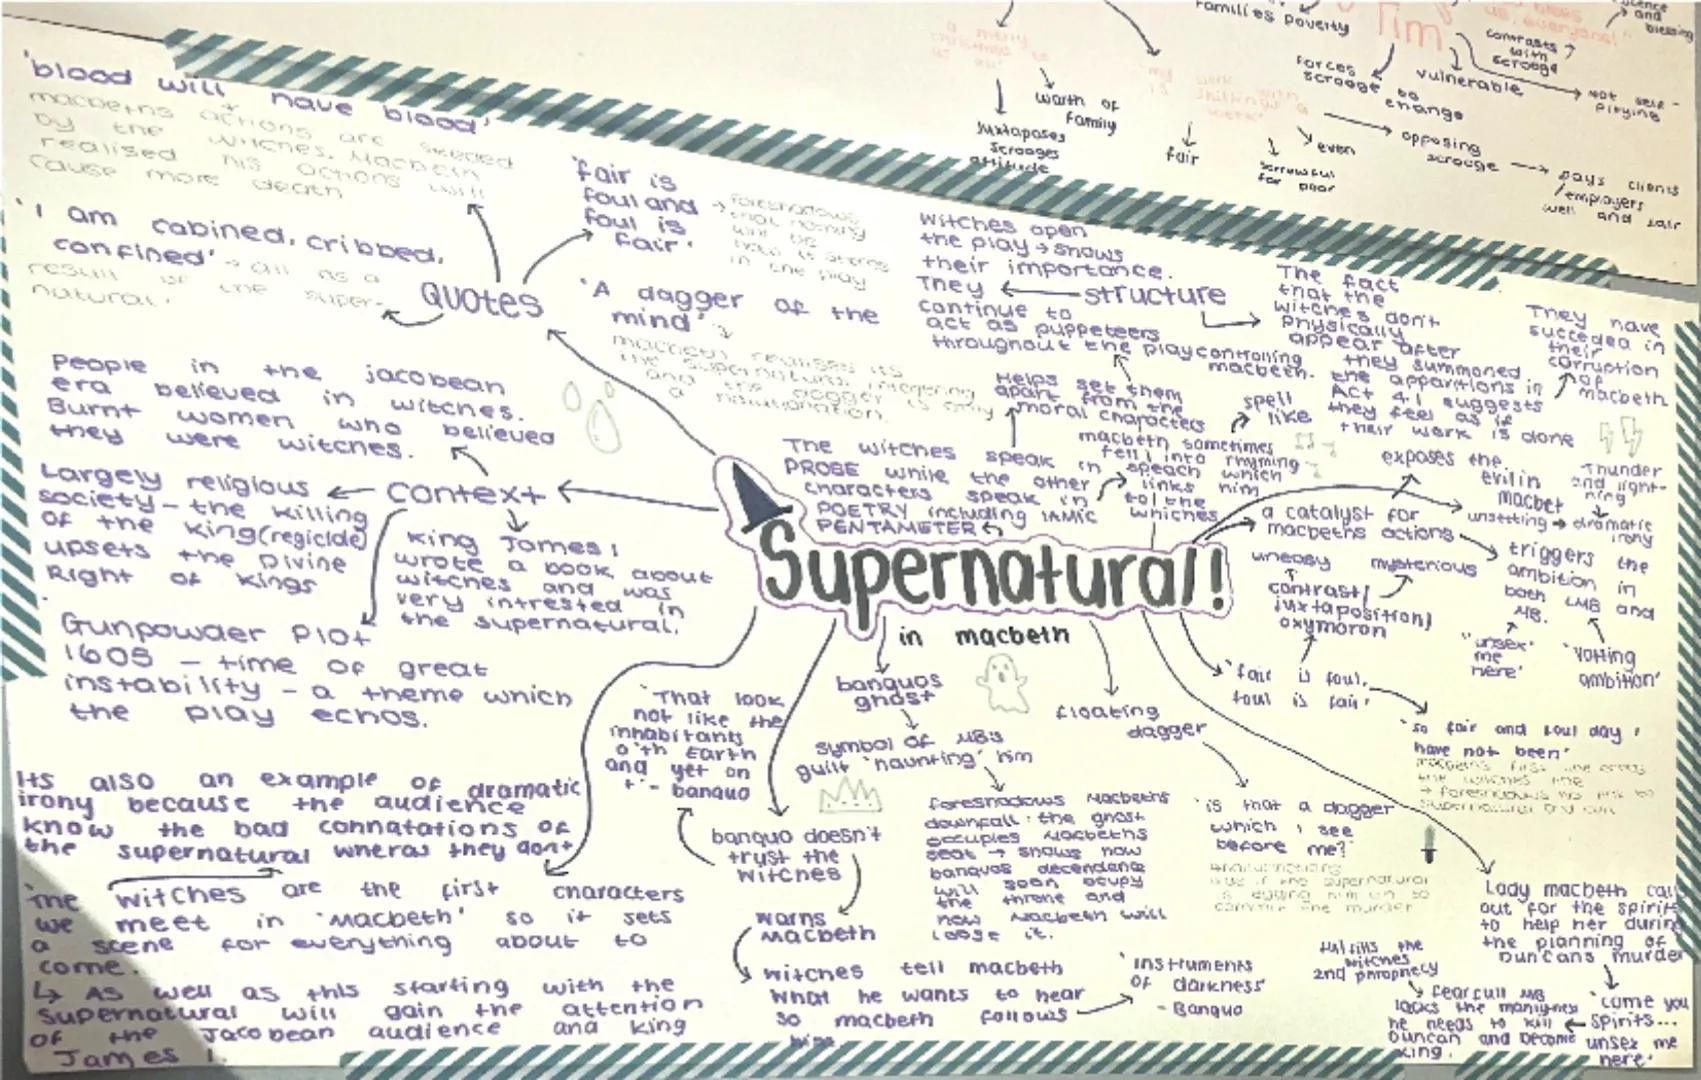 Families poverty
Tim
forces
scrooge to
change
vulnerable
contrasts
with
scrooge
and
blessing
Not self-
pitying
worth of
family
juxtaposes
scrooges
attitude
fair
even
sorrowful
for poor
opposing
scrooge
pays clients
/employers
well and fair
'blood will have blood'
macbeths actions are seeded
by the witches. Macbeth
realised his actions will
cause more death
'I am cabined, cribbed,
confined' → all as a
result of the super-
natural.
Quotes
'fair is
foul and
foul is
fair'
→ foreshadows
that nothing
will be
how it seems
in the play
'A dagger of the
mind'
macbeth realises its
the supernatural
and the dagger is only
a hallucination
witches open
the play → shows
their importance.
They
continue to
act as puppeteers
throughout the play controlling
macbeth.
structure
The fact
that the
witches don't
physically
appear after
they summoned
the apparitions in
Act 4.1 suggests
they feel as if
their work is done
They have
succeded in
their
corruption
of
macbeth
Helps set them
apart from the
moral characters
The witches speak in
PROSE while the other
characters speak in
POETRY including IAMIC
PENTAMETER
macbeth sometimes
fell into rhyming
speach which
links him
to the
whiches
spell
like
People in the jacobean
era believed in witches.
Burnt women who believed
they were witches.
Largely religious
society - the killing
of the king (regicide)
upsets the Divine
Right of kings
context
king James 1
wrote a book about
witches and was
very intrested in
the supernatural.
Gunpowder Plot
1605 - time of great
instability - a theme which
the play echos.
Supernatural!
in macbeth
exposes the
evil in
macbet
Thunder
and light-
ning
unsettling → dramatic
irony
a catalyst for
macbeths actions
triggers the
ambition in
both LMB and
MB.
"unsex
me
here"
'Volting
ambition'
uneasy
mysterious
contrast/
juxtaposition/
oxymoron
'fair is foul,
foul is fair'
'so fair and foul day i
have not been'
macbeths first line
the witches
→ foreshadows his
supernatural and evil
banquos
ghost
symbol of MB's
guilt 'haunting' him
foreshadows Macbeths
downfall: the ghost
occupies Macbeths
seat → shows how
banquos decendence
will soon ocupy
the throne and
how Macbeth will
loose it.
floating
dagger
'is that a dagger
which i see
before me?'
the supernatural
is egging him on to
commit the murder
'That look
not like the
inhabitants
o'th Earth
and yet on
't' - banquo
banquo doesn't
trust the
witches
warns
Macbeth
witches tell macbeth
what he wants to hear
so macbeth follows
him
'instruments
of darkness'
- Banquo
Its also an example of dramatic
irony because the audience
know the bad connatations of
the supernatural wheras they dont
The witches are the first characters
we meet in 'Macbeth' so it sets
a scene for everything about to
come.
↳ As well as this starting with the
supernatural will gain the attention
of the Jacobean audience and king
James 1.
Lady macbeth call
out for the spirits
to help her during
the planning of
Duncans murder
'come you
spirits...
unsex me
here'
fearfull MB
lacks the manlyness
he needs to kill
Duncan and become
king.
fulfills the
witches
2nd prophecy